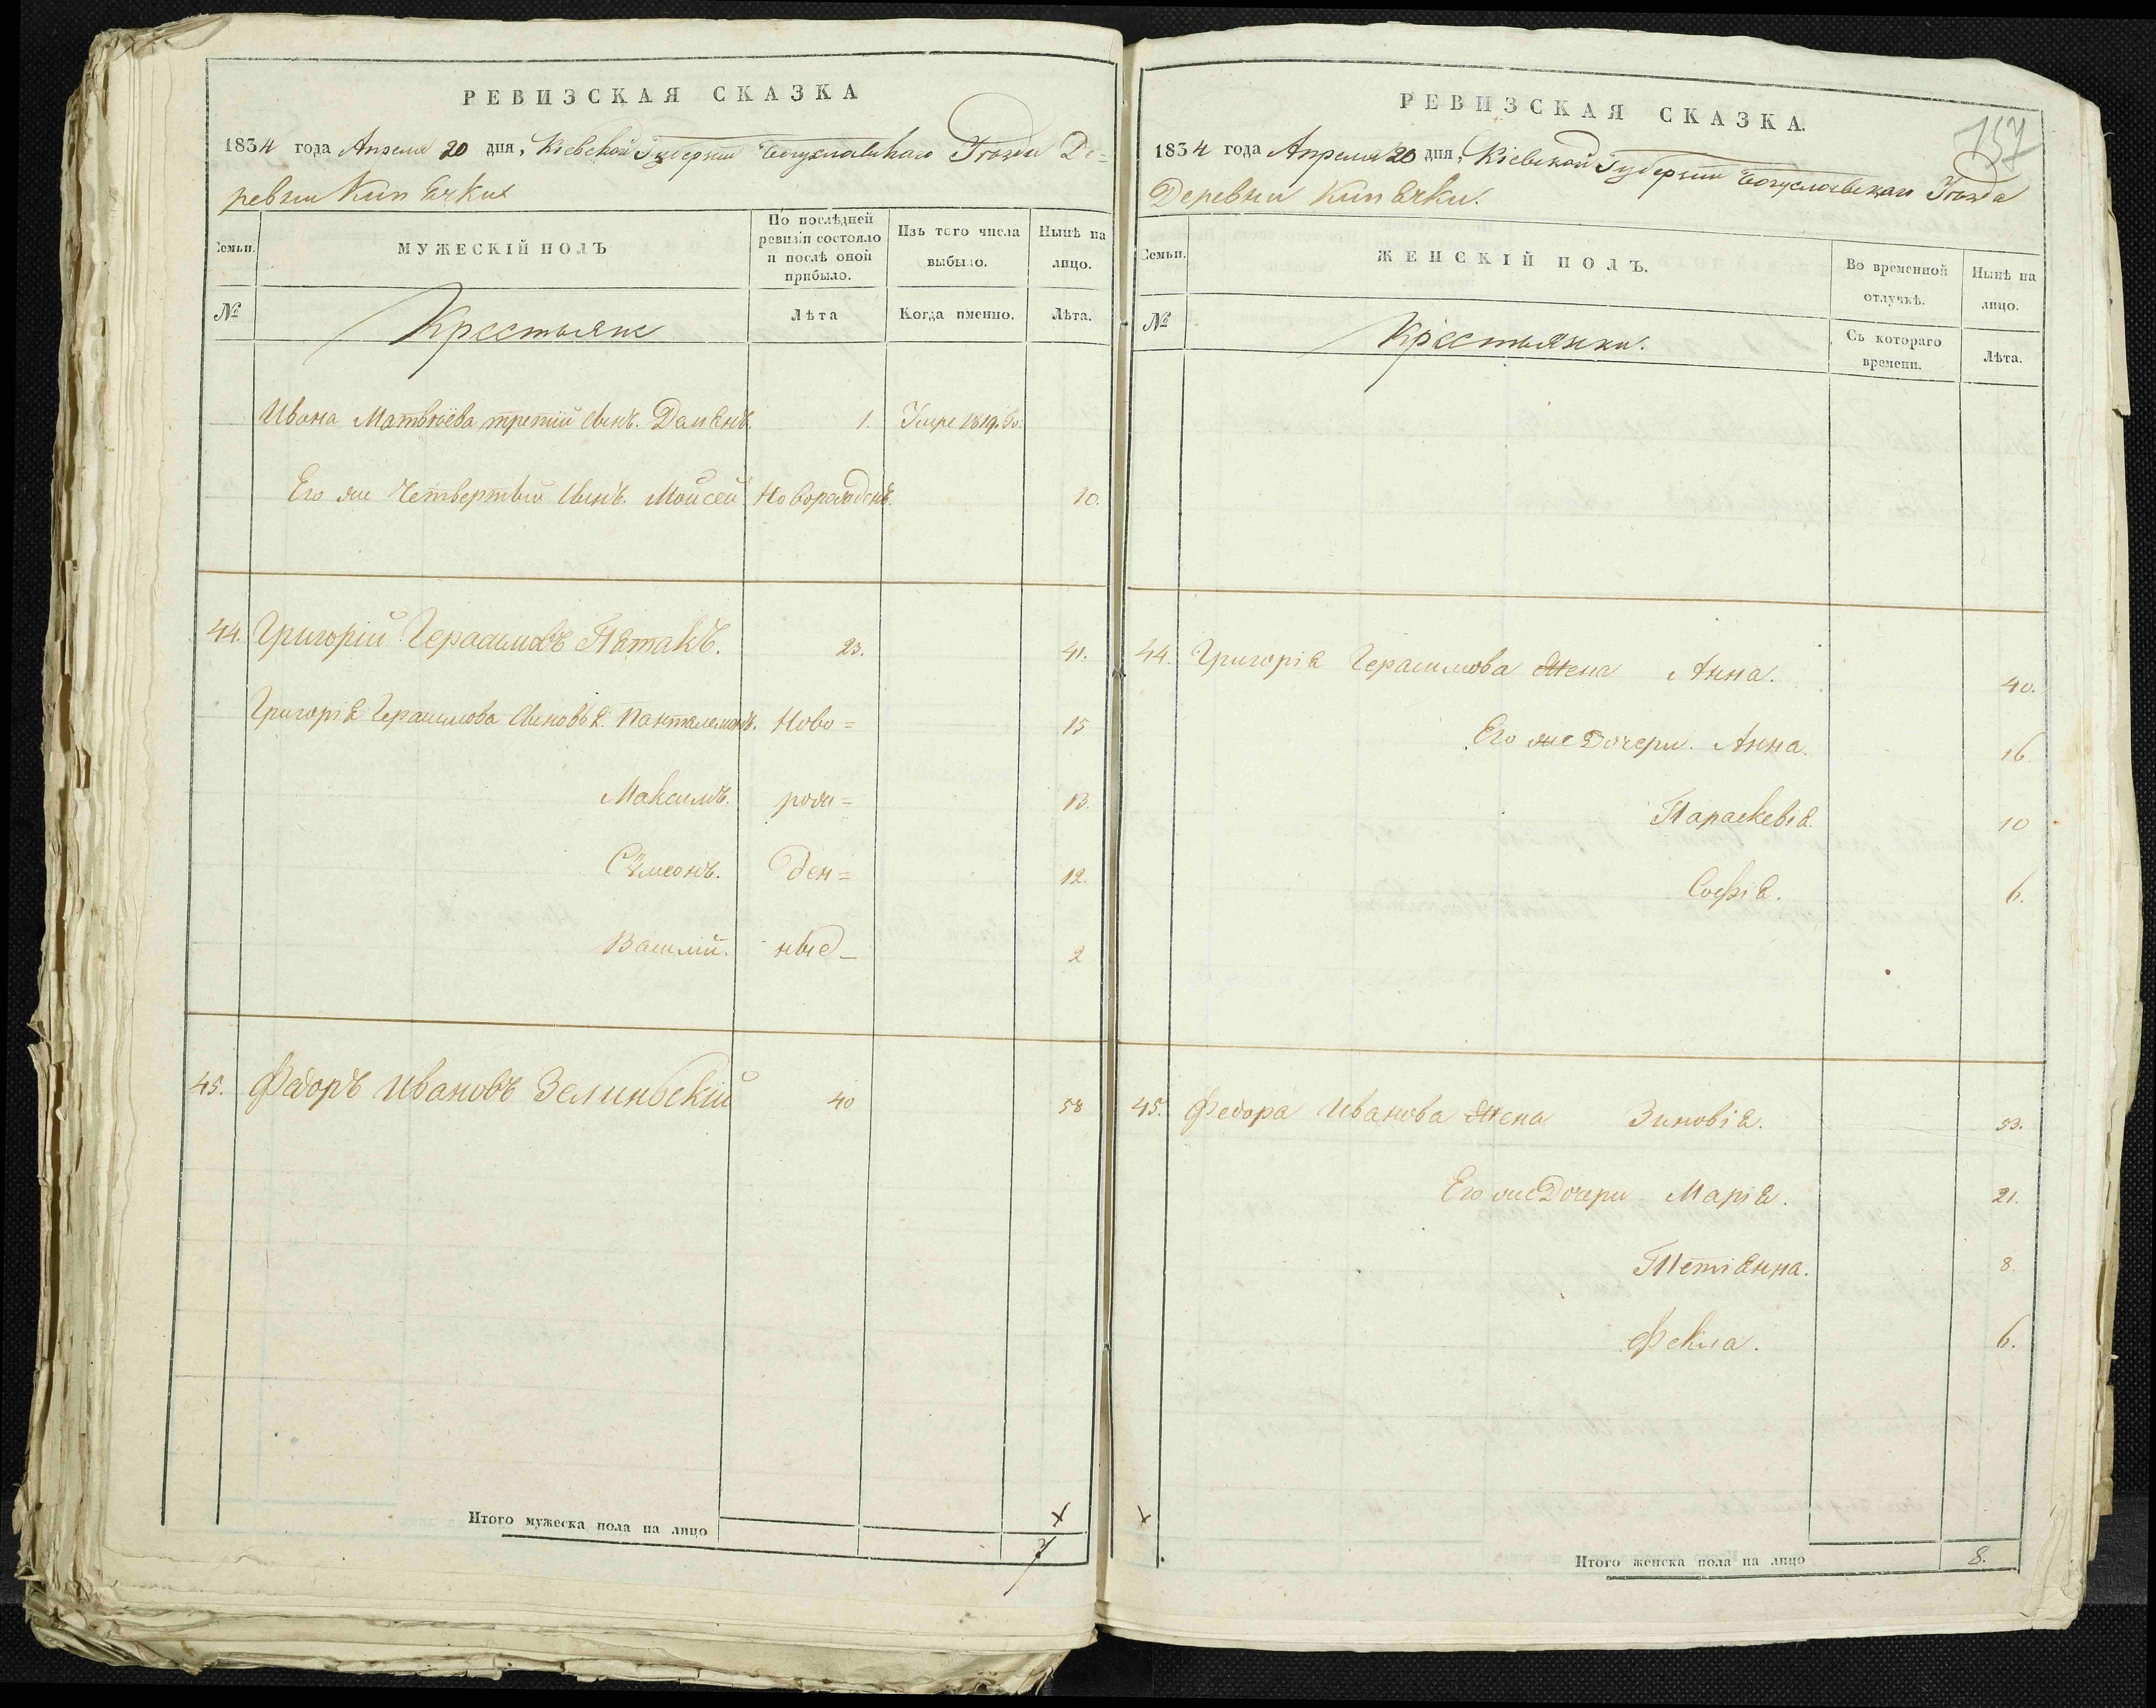 РЕВИЗСКАЯ СКАЗКА
1834 года Апреля 20 дня, Кіевской Губерніи Богуславскаго Уѣзда Де=
ревни Кипячких
Семьи.
МУЖЕСКІЙ ПОЛЪ
По послѣдней
ревизіи состояло
и послѣ оной
прибыло.
Изъ того числа
выбыло.
Нынѣ на
лицо.
№
Крестьяне
Лѣта
Когда именно.
Лѣта.
Ивана Матвѣева третій сынъ. Дамянъ. 1. Умре 1819. го.
Его же четвертый сынъ. Мойсей Новорожденъ. 10.
44. Григорій Герасимовъ Пятакъ. 23. 41.
Григорія Герасимова сыновья. Панталемонъ. Ново= 15
Максимъ. рож= 13.
Сѵмеонъ. ден= 12.
Василій. ные_ 2
45. Федоръ Ивановъ Зелиньскій 40 58
Итого мужеска пола на лицо
7
РЕВИЗСКАЯ СКАЗКА.
157
1834 года Апреля 20 дня, Кіевской Губерніи Богуславскаго Уѣзда
Деревни Кипячки.
Семьи.
ЖЕНСКІЙ ПОЛЪ.
Во временной
отлучкѣ.
Нынѣ на
лицо.
№
Крестьянки.
Съ котораго
времени.
Лѣта.
44. Григорія Герасимова жена Анна. 40.
Его же дочери. Анна. 16.
Параскевія. 10
Софія. 6.
45. Федора Иванова жена Зиновія. 53.
Его же Дочери Марія. 21.
Тетіянна. 8.
Фекла. 6.
Итого женска пола на лицо 8.